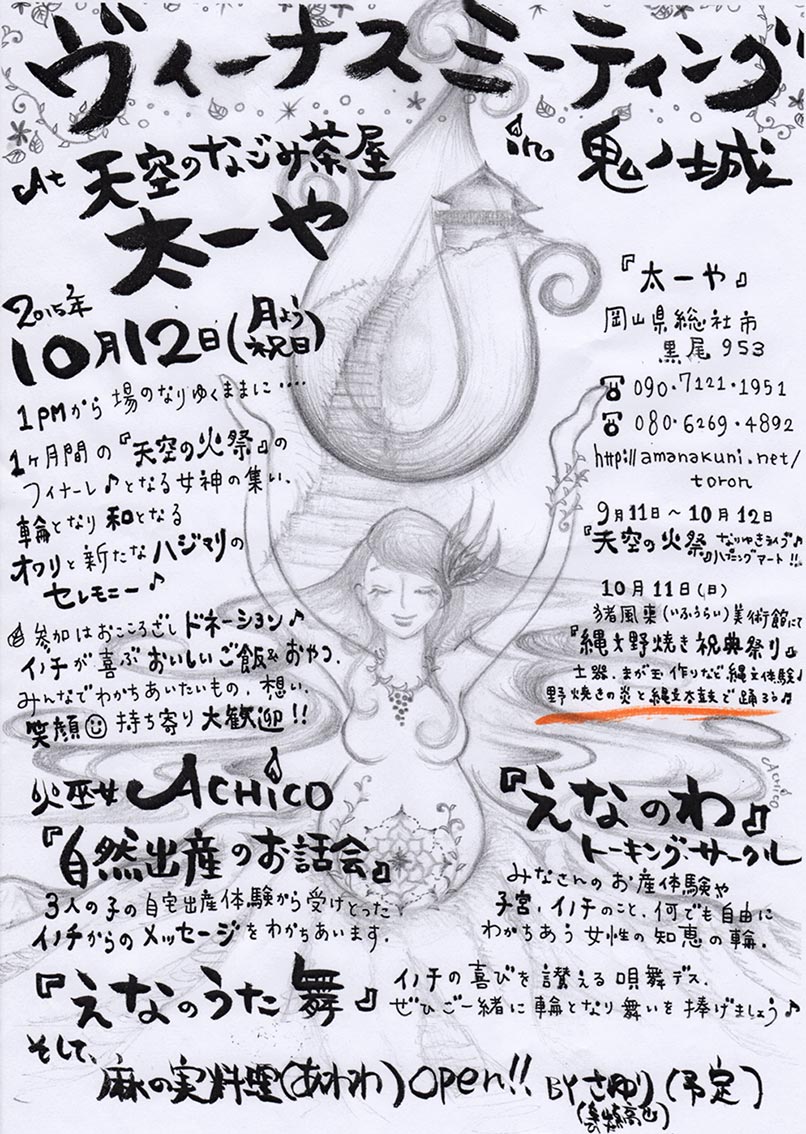 ヴィーナスミーティング
in 鬼ノ城
At 天空のなごみ茶屋
太一や
2015年
10月12日(月よう祝日)
1PMから 場のなりゆくままに‥‥
1ヶ月間の『天空の火祭』の
フィナーレ♪となる女神の集い、
輪となり 和となる
オワリと新たなハジマリの
セレモニー♪
参加はおこころざし ドネーション♪
イノチが喜ぶおいしいご飯&おやつ、
みんなでわかちあいたいもの、想い、
笑顔☺持ち寄り大歓迎!!
『太一や』
岡山県総社市
黒尾953
☎090・7121・1951
☎080・6269・4892
http://amanakuni.net/
toron
9月11日〜10月12日
『天空の火祭』なりゆきライブ♪
ハプニングマート!!
10月11日(日)
猪風来(いふうらい)美術館にて
『縄文野焼き祝典祭り』
土器、まが玉作りなど縄文体験♪
野焼きの炎と縄文太鼓で踊る♪
ACHiCO
火巫女 ACHiCO
『自然出産のお話会』
3人の子の自宅出産体験から受けとった
イノチからのメッセージをわかちあいます.
『えなのわ』
トーキング・サークル
みなさんのお産体験や
子宮、イノチのこと、何でも自由に
わかちあう女性の知恵の輪.
『えなのうた舞』
イノチの喜びを讃える唄舞デス.
ぜひご一緒に輪となり舞いを捧げましょう♪
そして、
麻の実料理(あわわ)open!! BY さゆり(予定)